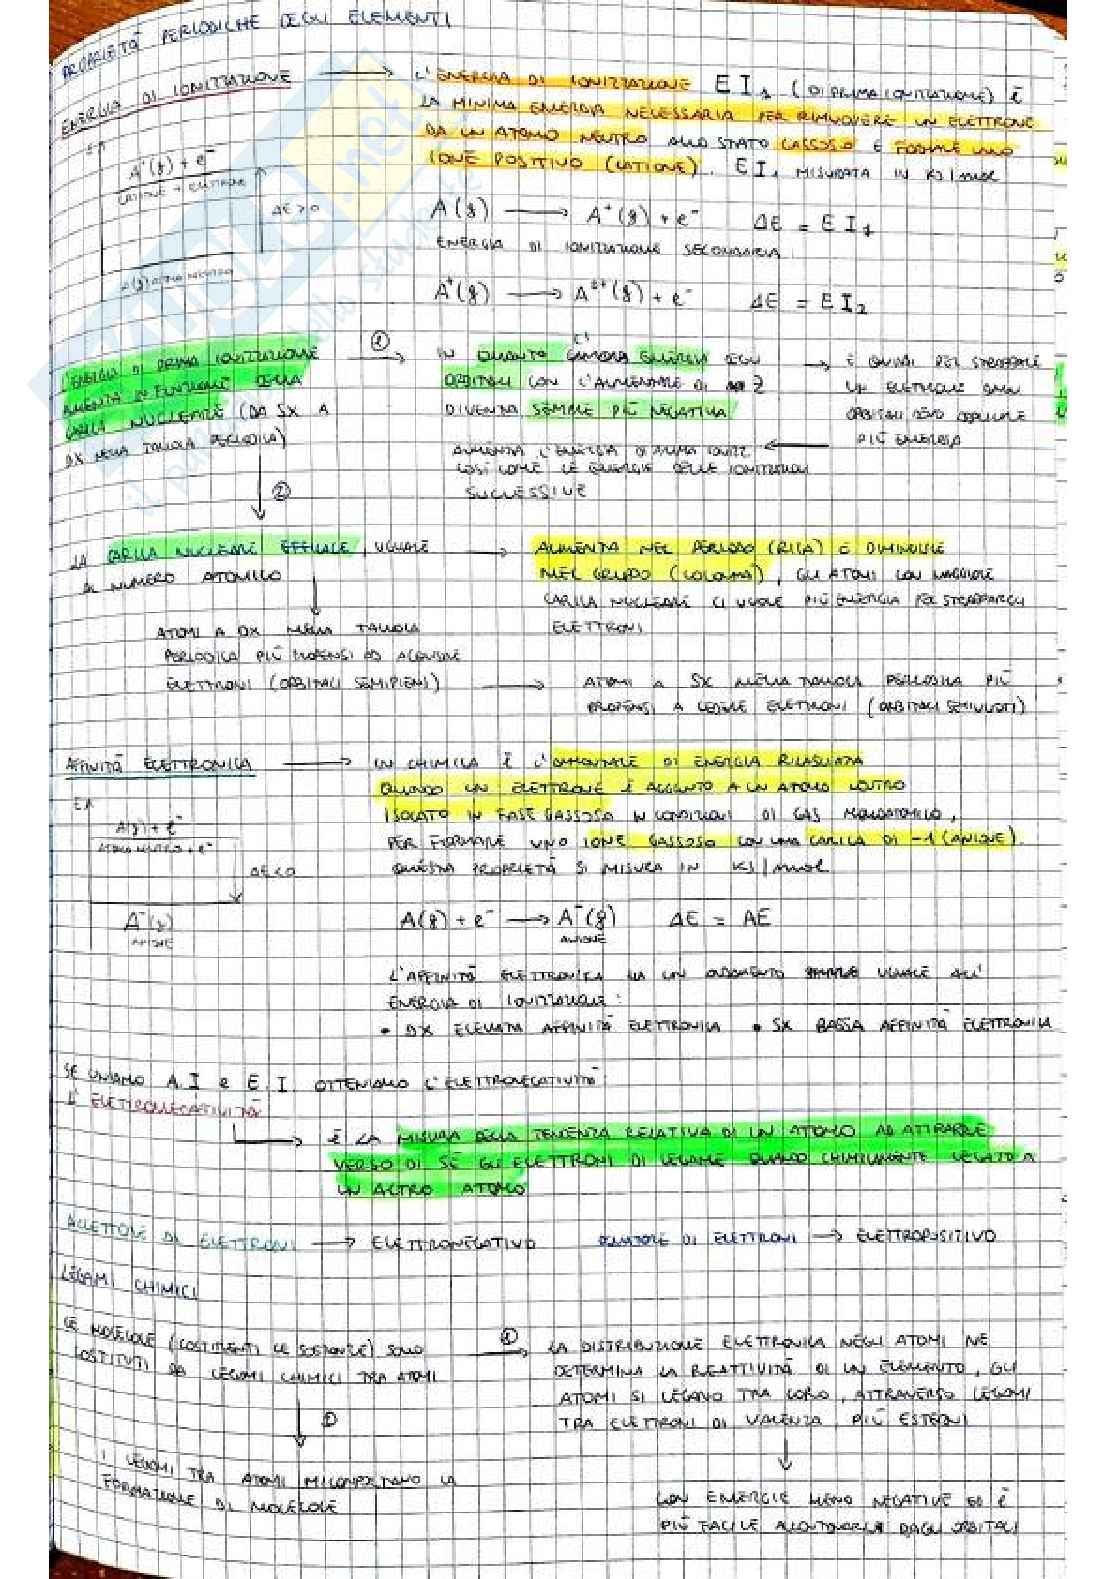 PROPRIETÀ PERIODICHE DEGLI ELEMENTI
ENERGIA DI IONIZZAZIONE → L'ENERGIA DI IONIZZAZIONE EI₁ (DI PRIMA IONIZZAZIONE) È
LA MINIMA ENERGIA NECESSARIA PER RIMUOVERE UN ELETTRONE
DA UN ATOMO NEUTRO ALLO STATO GASSOSO E FORMARE UNO
IONE POSITIVO (CATIONE). EI₁ MISURATA IN KJ/mol
E
A⁺(g) + e⁻
CATIONE + ELETTRONE
ΔE>0
A(g) ATOMO NEUTRO
A(g) → A⁺(g) + e⁻ ΔE = EI₁
ENERGIA DI IONIZZAZIONE SECONDARIA
A⁺(g) → A²⁺(g) + e⁻ ΔE = EI₂
L'ENERGIA DI PRIMA IONIZZAZIONE
AUMENTA IN FUNZIONE DELLA
CARICA NUCLEARE (DA SX A
DX NELLA TAVOLA PERIODICA)
① → IN QUANTO ENERGIA DEGLI
ORBITALI CON L'AUMENTARE DI Z
DIVENTA SEMPRE PIÙ NEGATIVA
→ È QUINDI PER STRAPPARE
UN ELETTRONE DAGLI
ORBITALI DEVO
PIÙ ENERGIA
← AUMENTA L'ENERGIA DI PRIMA IONIZZ.
COSÌ COME LE ENERGIE DELLE IONIZZAZIONI
SUCCESSIVE
②
LA CARICA NUCLEARE EFFICACE, UGUALE
AL NUMERO ATOMICO
→ AUMENTA NEL PERIODO (RIGA) E DIMINUISCE
NEL GRUPPO (COLONNA), GLI ATOMI CON MAGGIORE
CARICA NUCLEARE CI VUOLE PIÙ ENERGIA PER STRAPPARGLI
ELETTRONI
ATOMI A DX NELLA TAVOLA
PERIODICA PIÙ PROPENSI AD ACQUISIRE
ELETTRONI (ORBITALI SEMIPIENI)
→ ATOMI A SX NELLA TAVOLA PERIODICA PIÙ
PROPENSI A CEDERE ELETTRONI (ORBITALI SEMIVUOTI)
AFFINITÀ ELETTRONICA → IN CHIMICA È L'AMMONTARE DI ENERGIA RILASCIATA
QUANDO UN ELETTRONE È AGGIUNTO A UN ATOMO NEUTRO
ISOLATO IN FASE GASSOSA IN CONDIZIONI DI GAS MONOATOMICO,
PER FORMARE UNO IONE GASSOSO CON UNA CARICA DI -1 (ANIONE).
QUESTA PROPRIETÀ SI MISURA IN KJ/mol
A(g) + e⁻
ATOMO NEUTRO + e⁻
ΔE<0
A⁻(g)
ANIONE
A(g) + e⁻ → A⁻(g) ΔE = AE
ANIONE
L'AFFINITÀ ELETTRONICA HA UN ANDAMENTO UGUALE ALL'
ENERGIA DI IONIZZAZIONE:
• DX ELEVATA AFFINITÀ ELETTRONICA • SX BASSA AFFINITÀ ELETTRONICA
SE UNIAMO A.I e E.I. OTTENIAMO L'ELETTRONEGATIVITÀ:
L'ELETTRONEGATIVITÀ
→ È LA MISURA DELLA TENDENZA RELATIVA DI UN ATOMO AD ATTRARRE
VERSO DI SÉ GLI ELETTRONI DI LEGAME QUANDO CHIMICAMENTE LEGATO A
UN ALTRO ATOMO
ACCETTORE DI ELETTRONI → ELETTRONEGATIVO DONATORE DI ELETTRONI → ELETTROPOSITIVO
LEGAMI CHIMICI
LE MOLECOLE (COSTITUENTI LE SOSTANZE) SONO
COSTITUITI DA LEGAMI CHIMICI TRA ATOMI
② → LA DISTRIBUZIONE ELETTRONICA NEGLI ATOMI NE
DETERMINA LA REATTIVITÀ DI UN ELEMENTO, GLI
ATOMI SI LEGANO TRA LORO, ATTRAVERSO LEGAMI
TRA ELETTRONI DI VALENZA, PIÙ ESTERNI
①
I LEGAMI TRA ATOMI LA
FORMAZIONE DI MOLECOLE
CON ENERGIE MENO NEGATIVE ED È
PIÙ FACILE ALLONTANARLI DAGLI ORBITALI